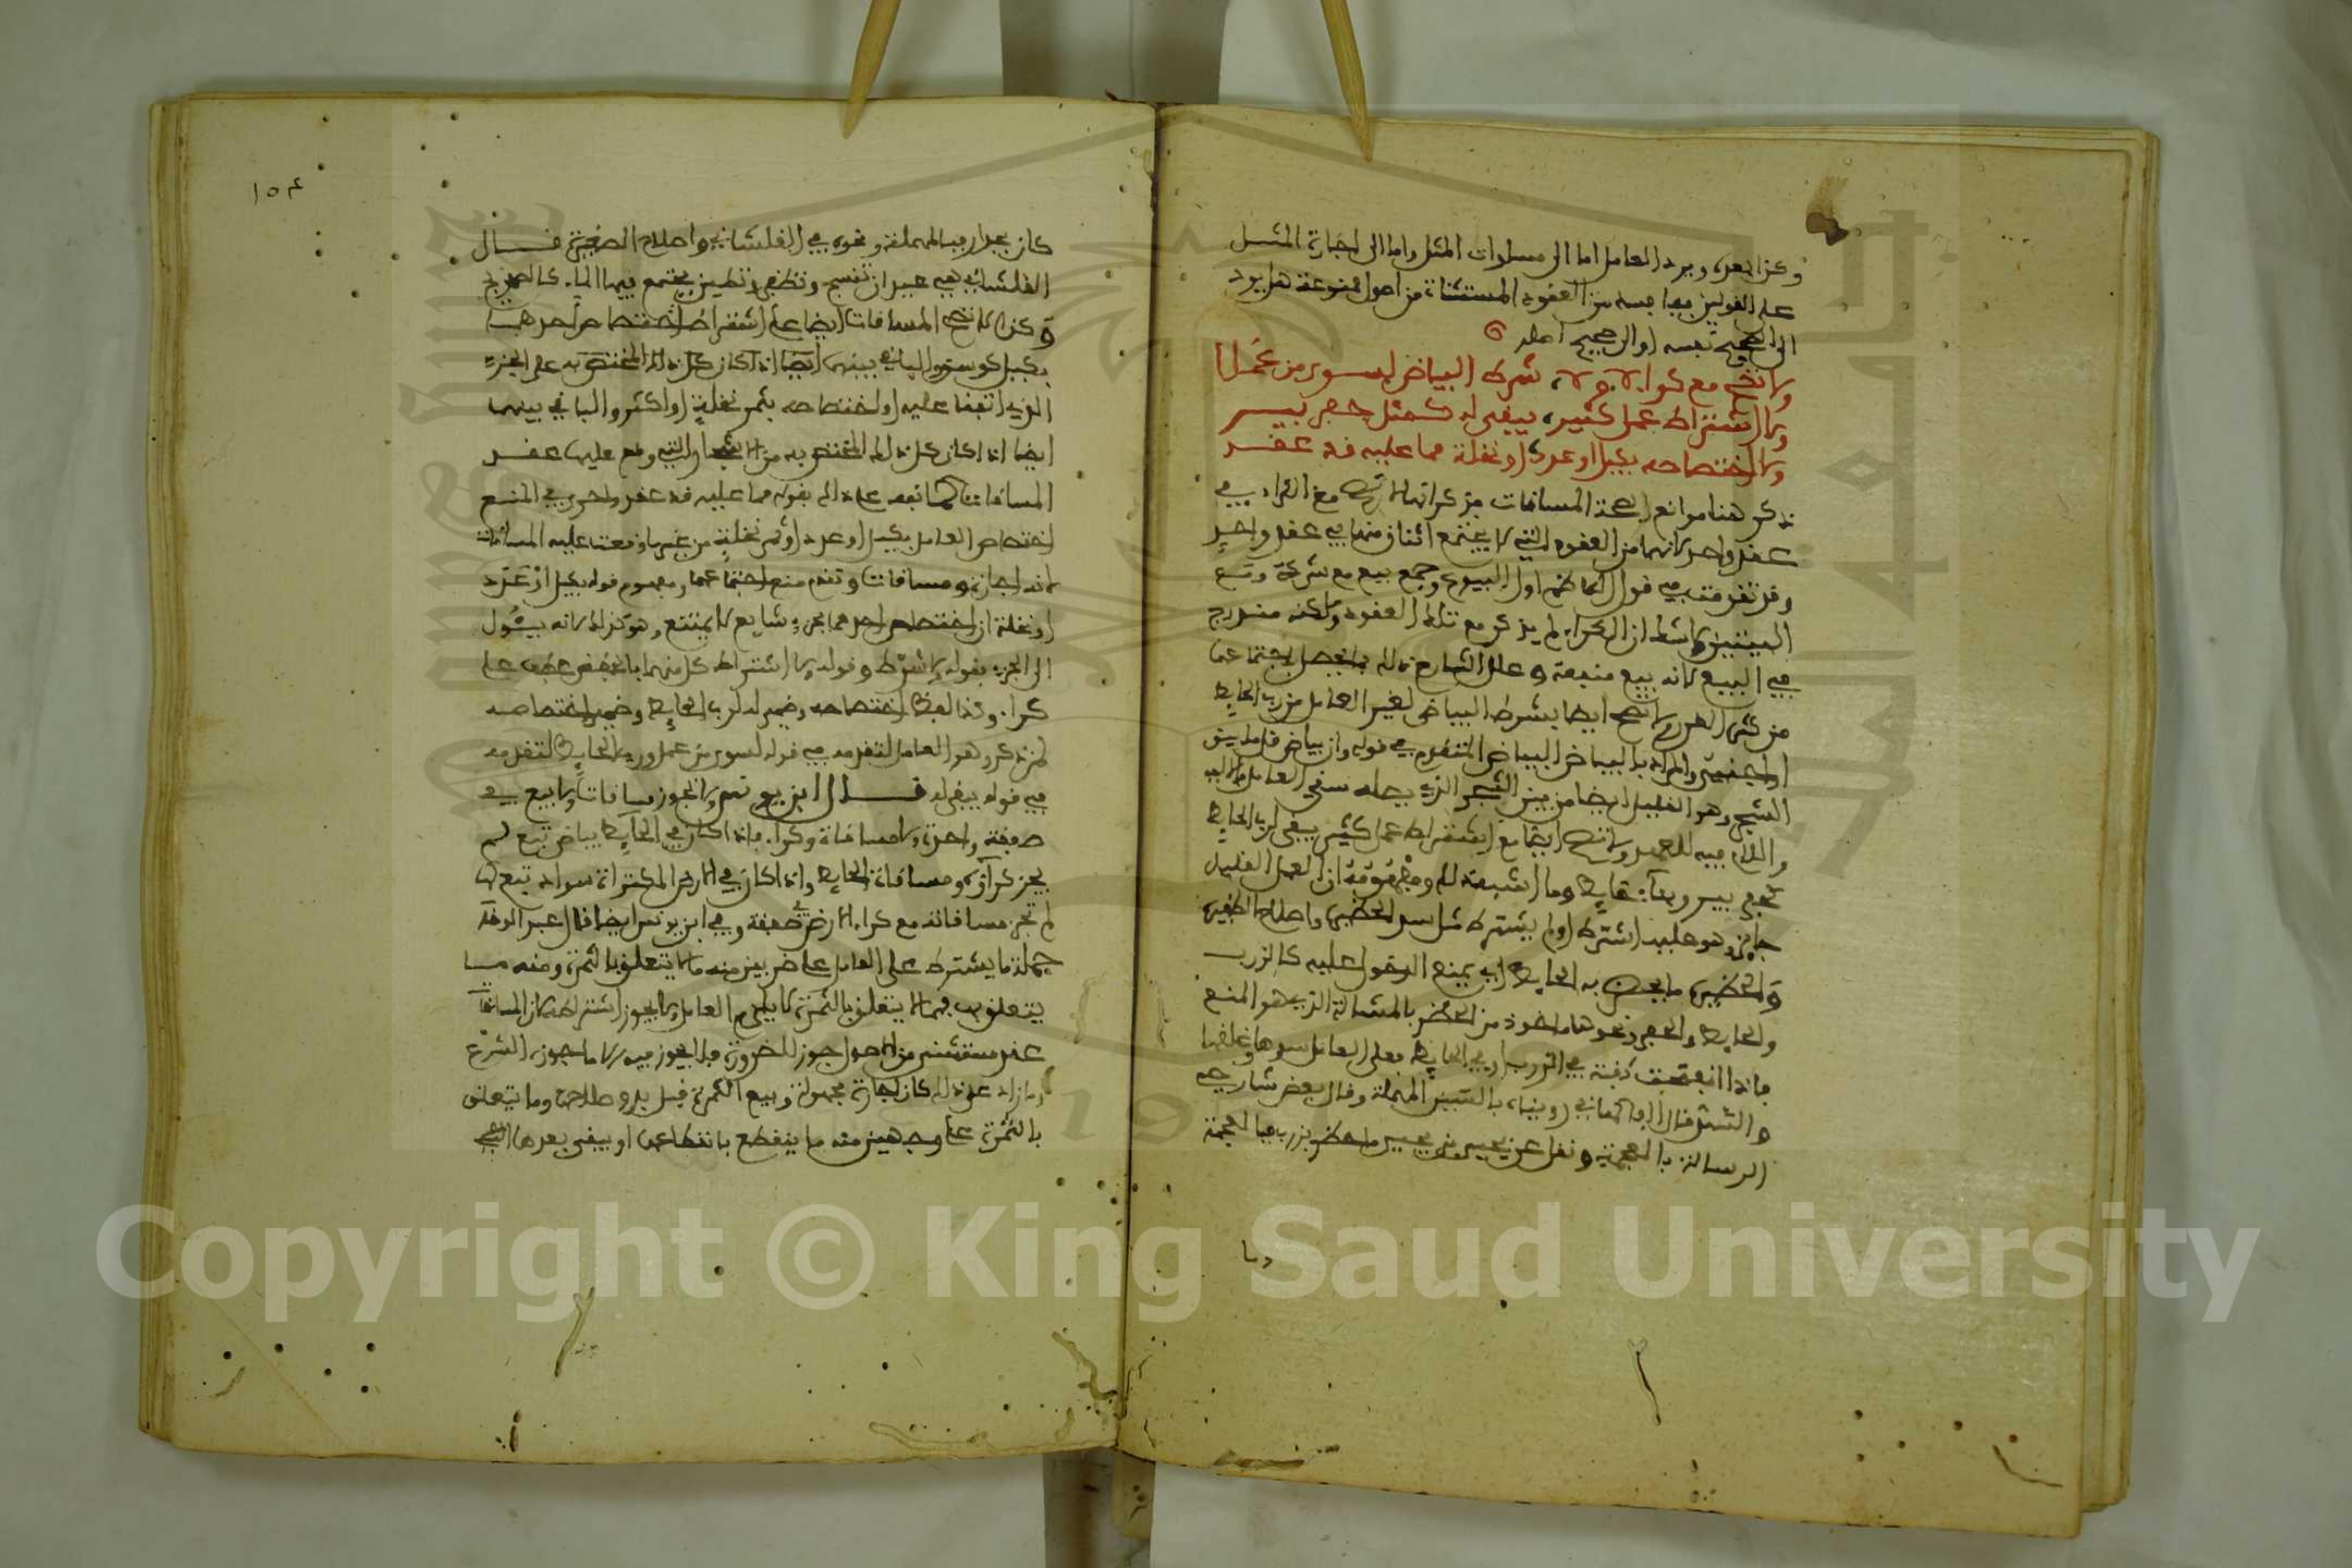 وكذا بعده ويرد العامل اما الى مساوات المثل واما الى اجارة المثل
على القولين فيما فسد من العقود المستثناة من اصول ممنوعة هل يرد
الى صحيح نفسه او الى صحيح اصله
ولا تصح مع كرا ولا شرط البياض لسوى من عملا
ولا اشتراط عمل كثير يبقى له كمثل حفر بير
ولا اختصاصه بكيل او عدد او نخلة مما عليه قد عقد
ذكر هنا موانع لصحة المساقات فذكر انها لا تصح مع الكراء في
عقد واحد لانهما من العقود التي لا يجتمع اثنان منها في عقد واحد
وقد تقدمت في قول الناظم اول البيوع وجمع بيع مع شركة ومع
البيتين الا ان الكراء لم يذكر مع تلك العقود ولكنه مندرج
في البيع لانه بيع منفعة وعلل الشارح ذلك بما يحصل باجتماعهما
من كثرة الغرر ولا تصح ايضا بشرط البياض لغير العامل من رب الحايط
او اجنبي والمراد بالبياض البياض المتقدم في قوله وان بياض قل ما بين
الشجر وهو القليل ايضا من بين الشجر الذي يصله سقي العامل
واللام فيه للعهد ولا تصح ايضا مع اشتراط عمل كثير يبقى لرب الحايط
كحفر بير وبناء حايط وما اشبه ذلك ومفهومه ان العمل القليل
جايز وهو عليه اشترط او لم يشترط مثل سد الحظير واصلاح الضفير
والحظير ما يحظر به الحايط اي يمنع الدخول عليه كالزرب
والحايط والحفير ونحوها ماخوذ من الحظر بالمشالة الذي هو المنع
فاذا انفتحت كفته في الزرب او في الحايط فعلى العامل سدها وغلقها
والشد قال الفاكهاني رويناه بالسين المهملة وقال بعض شارحي
الرسالة بالمعجمة ونقل عن يحيى بن يحيى ما حظر بزرب فبالمعجمة
وما
١٥٤
كان بجدار فبالمهملة ونحوه في القلشاني واصلاح الضفيرة قال
القلشاني هي عيدان تنسج وتضفر وتطين يجتمع فيها الماء كالصهريج
وكذا لا تصح المساقات ايضا على اشتراط اختصاص احدهما
بكيل كوسق والباقي بينهما ايضا اذا كان كل ذلك المختص به على الجزء
الذي اتفقا عليه او اختصاصه بثمر نخلة او اكثر والباقي بينهما
ايضا اذا كان كل ذلك المختص به من الشجار التي وقع عليها عقد
المساقات كما نبه على ذلك بقوله مما عليه قد عقد واحرى في المنع
اختصاص العامل بكيل او عدد او ثمر نخلة من غير ما وقعت عليه المساقات
لانه اجارة ومساقات وتقدم منع اجتماعهما ومفهوم قوله بكيل او عدد
او نخلة ان اختصاص احدهما بجزء شايع لا يمتنع وهو كذلك لانه يئول
الى الجزء بقوله ولا شرط وقوله ولا اشتراط كل منهما بالخفض عطف على
كرا وكذا لفظ اختصاصه وضمير له لرب الحايط وضمير اختصاصه
لمن ذكر وهو العامل المتقدم في قوله لسوى من عمل ورب الحايط المتقدم
في قوله يبقى له قال ابن يونس ولا تجوز مساقات ولا بيع في
صفقة واحدة ولا مساقاة وكرا فاذا كان في الحايط بياض تبع لم
يجز كراؤه ومساقاة الحايط واذا كان في الارض المكتراة سواد تبع لها
لم تجز مساقاته مع كراء الارض في صفقة وفي ابن يونس ايضا قال عبد الوهاب
جملة ما يشترط على العامل على ضربين منه ما لا يتعلق بالثمرة ومنه ما
يتعلق بها فما لا يتعلق بالثمرة لا يلزم العامل ولا يجوز اشتراطه لان المساقاة
عقد مستثنى من اصول جوز للضرورة فلا يجوز فيه الا ما جوزه الشرع
وما زاد على ذلك كان اجارة مجهولة وبيع الثمرة قبل بدو صلاحها وما يتعلق
بالثمرة على وجهين منه ما ينقطع بانقطاعها او يبقى بعدها الشيء
Copyright © King Saud University